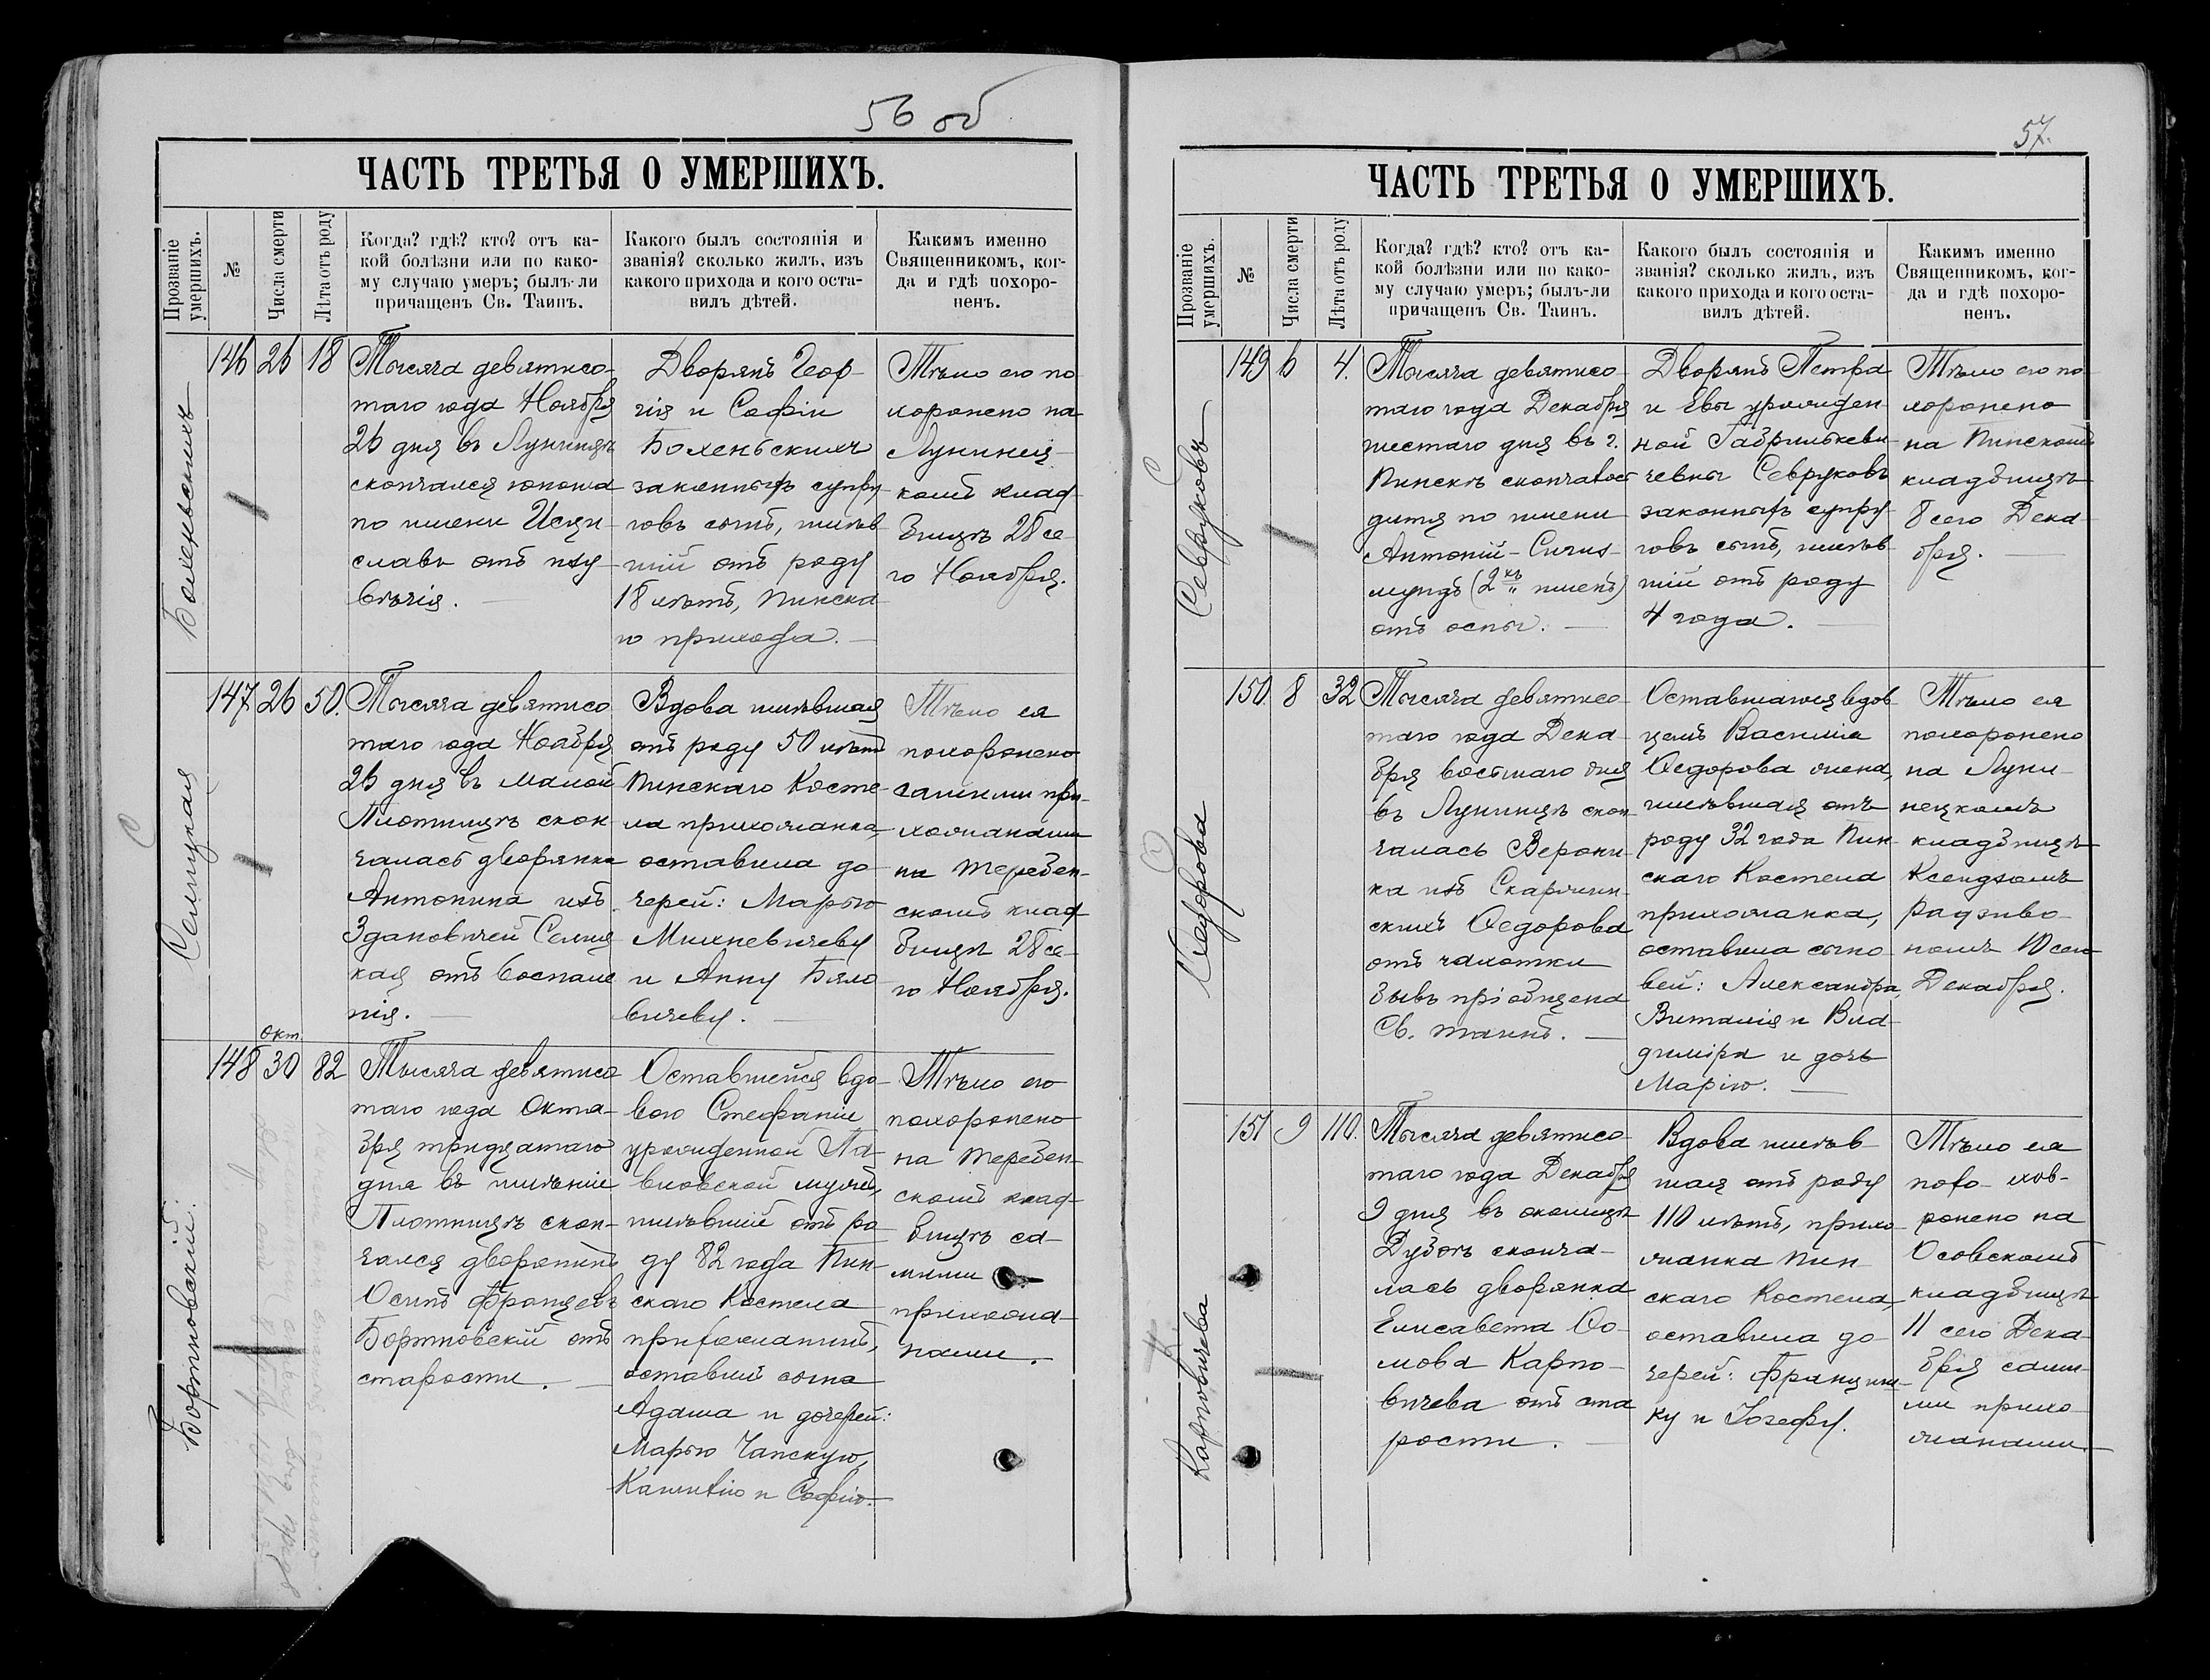 56 об
ЧАСТЬ ТРЕТЬЯ О УМЕРШИХЪ.
Прозваніе умершихъ.
№
Числа смерти
Лѣта отъ роду
Когда? гдѣ? кто? отъ ка-
кой болѣзни или по како-
му случаю умеръ; былъ-ли
причащенъ Св. Таинъ.
Какого былъ состоянія и
званія? сколько жилъ, изъ
какого прихода и кого оста-
вилъ дѣтей.
Какимъ именно
Священникомъ, ког-
да и гдѣ похоро-
ненъ.
146
26
18
Тысяча девятисо-
таго года Ноября
26 дня въ Лунинцѣ
скончался юноша
по имени
славъ отъ
.
Дворянъ Геор-
гія и Софіи
законныхъ супру-
говъ сынъ, имѣв
шій отъ роду
18 лѣтъ, Пинска
го прихода.
Тѣло его по
хоронено на
Лунинец-
комъ клад-
бищѣ 28 се-
го Ноября.
Селицкая
147
26
50.
Тысяча девятисо
таго года Ноября
26 дня въ малой
Плотницѣ скон
чалась дворянка
Антонина изъ
Здановичей Селиц
кая отъ воспале
нія.
Вдова имѣвшая
отъ роду 50 лѣтъ
Пинскаго Косте-
ла прихожанка,
оставила до-
черей: Марью
Михневичеву
и Анну Бяло
вичеву.
Тѣло ея
похоронено
самими при-
хожанами
на Теребен-
скомъ клад
бищѣ 28 се-
го Ноября.
Бортновскій.
148
окт
30
82
Тысяча девятисо
таго года Октя-
бря тридцатаго
дня въ имѣніи
Плотницѣ скон-
чался дворянинъ
Осипъ Францевъ
Бортновскій отъ
старости.
Оставшейся вдо-
вою Стефаніи
урожденной Па-
вловской мужъ,
имѣвшій отъ ро
ду 82 года Пин-
скаго Костела
прихожанинъ,
оставилъ сына
Адама и дочерей:
Марью Чапскую,
Камилію и Софію.
Тѣло его
похоронено
на Теребен-
скомъ клад-
бищѣ са-
мими
прихожа-
нами.
57.
ЧАСТЬ ТРЕТЬЯ О УМЕРШИХЪ.
Прозваніе умершихъ.
№
Числа смерти
Лѣта отъ роду
Когда? гдѣ? кто? отъ ка-
кой болѣзни или по како-
му случаю умеръ; былъ-ли
причащенъ Св. Таинъ.
Какого былъ состоянія и
званія? сколько жилъ, изъ
какого прихода и кого оста-
вилъ дѣтей.
Какимъ именно
Священникомъ, ког-
да и гдѣ похоро-
ненъ.
Севруковъ
149
6
4.
Тысяча девятисо-
таго года Декабря
шестаго дня въ г.
Пинскѣ скончалось
дитя по имени
Антоній-Сигиз-
мундъ (2хъ именъ)
отъ оспы.
Дворянъ Петра
и Евы урожден-
ной Габрилькеви
чевны Севруковъ
законныхъ супру-
говъ сынъ, имѣв-
шій отъ роду
4 года.
Тѣло его по
хоронено
на Пинскомъ
кладбищѣ
8 сего Дека-
бря.
Ѳедорова
150
8
32
Тысяча девятисо-
таго года Дека-
бря восьмаго дня
въ Лунинцѣ скон
чалась Верони-
ка изъ Скаржин-
скихъ Ѳедорова
отъ чахотки
бывъ пріобщена
Св. таинъ.
Оставшагося вдов
цемъ Василія
Ѳедорова жена,
имѣвшая отъ
роду 32 года Пин-
скаго Костела
прихожанка,
оставила сыно-
вей: Александра,
Виталія и Вла-
диміра и дочь
Марію.
Тѣло ея
похоронено
на Луни-
нецкомъ
кладбищѣ
Ксендзомъ
Радзиво-
номъ 10 сего
Декабря.
Карповичева
151
9
110.
Тысяча девятисо-
таго года Декабря
9 дня въ околицѣ
сконча-
лась дворянка
Елисавета Ѳо-
мова Карпо-
вичева отъ ста
рости.
Вдова имѣв-
шая отъ роду
110 лѣтъ, прихо-
жанка Пин
скаго Костела,
оставила до-
черей: Францишка-
ку и Іозефу.
Тѣло ея
ронено на
Осовскомъ
кладбищѣ
11 сего Дека-
бря сами-
ми прихо-
жанами.